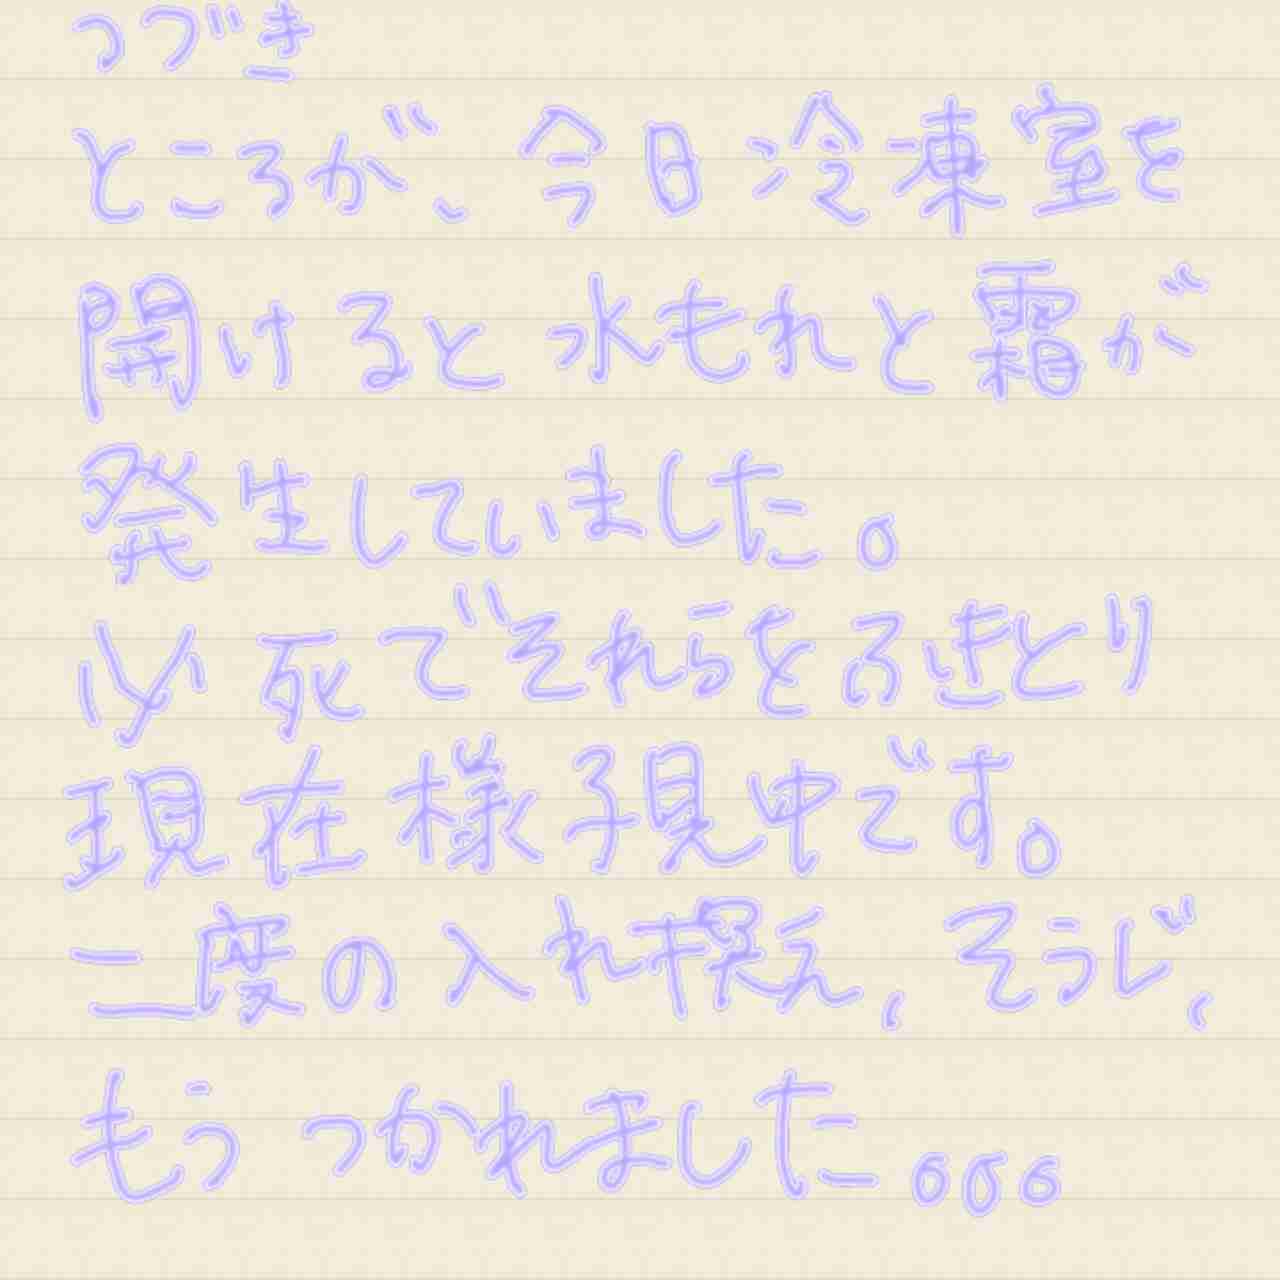 つづき
ところが、今日冷凍室を
開けると水もれと霜が
発生していました。
必死でそれらをふきとり
現在様子見中です。
二度の入れ換え、そうじ、
もうつかれました。。。